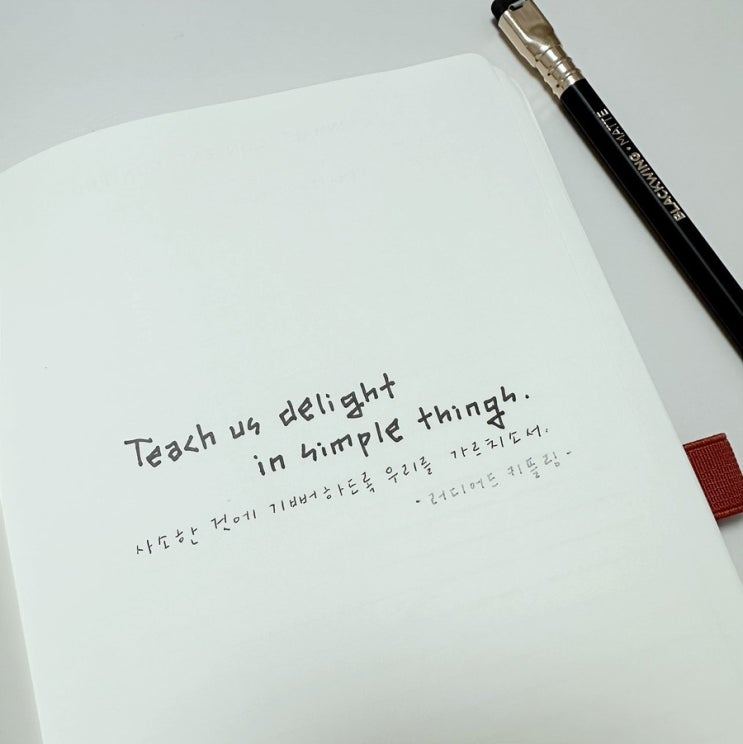 Teach us delight
in simple things.
사소한 것에 기뻐하도록 우리를 가르치소서.
- 러디어드 키플링 -
BLACKWING • MATTE